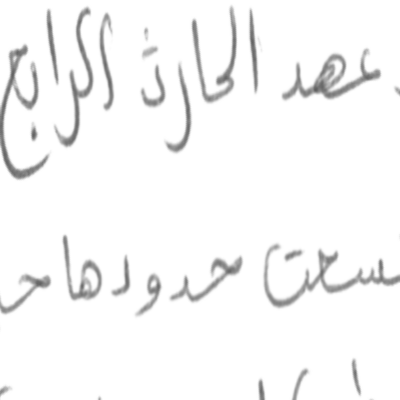 عهد الحارث الرابع
تسعت حدودها